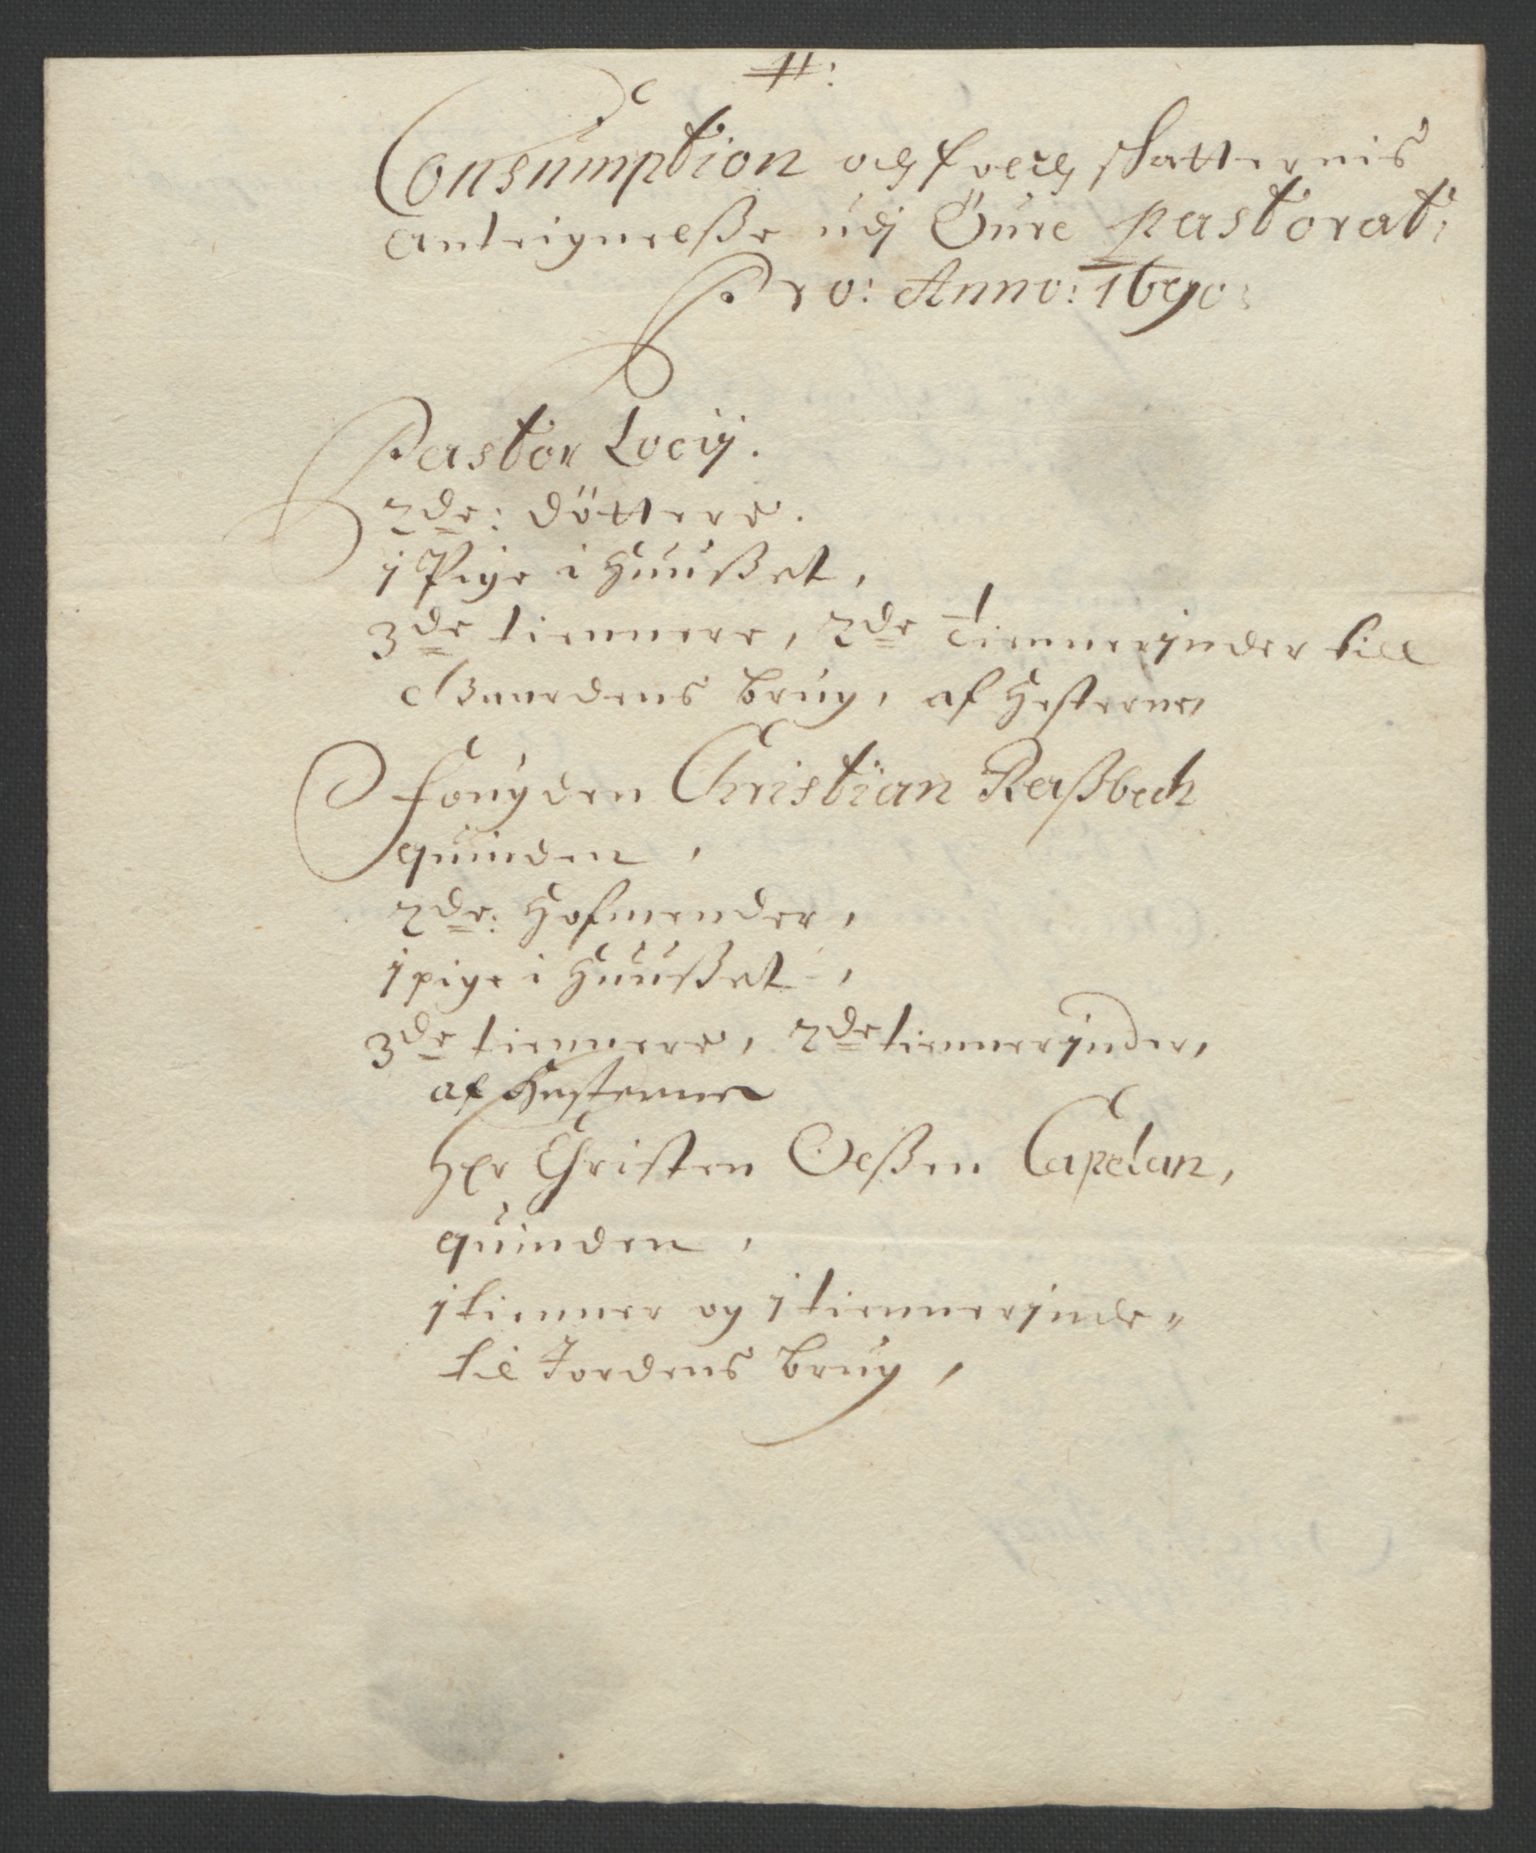 #:
Consumption och folch skatternis
Anteignelße udj Öure pastorat:
Pro: Anno: 1690:
Pastor Locij.
2de: döttere.
j Pige i Huußet,
3de tiennere, 2de Tiennerjnder till
Gaardens brug, af Hesterne,
Fougden Christian Raßbech
quinden,
2de: Hofmender,
j pige i Huußet,
3de tiennere, 2de tiennerjnder,
af Hesterne
Her Christen Oelßen Capelan,
quinden,
j tienner og j tiennerjnde
til Jordens brug,